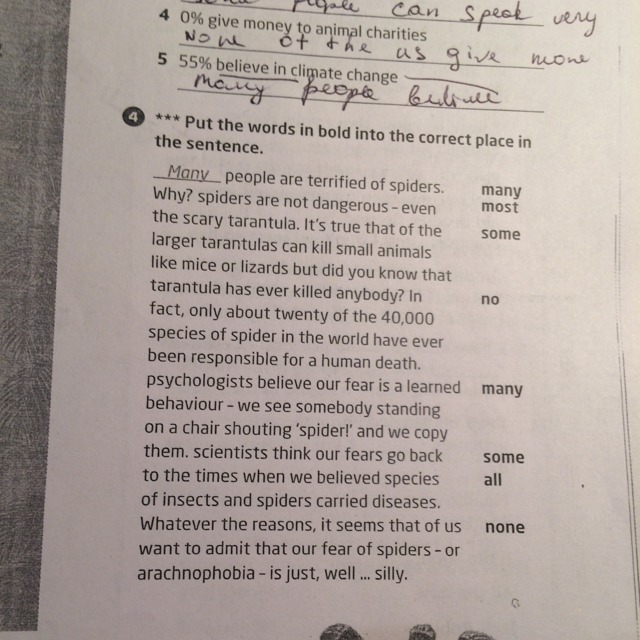 people can speak very
4 0% give money to animal charities
None of the us give mone
5 55% believe in climate change
Many people believe
4 *** Put the words in bold into the correct place in
the sentence.
Many people are terrified of spiders. many
Why? spiders are not dangerous – even most
the scary tarantula. It's true that of the some
larger tarantulas can kill small animals
like mice or lizards but did you know that
tarantula has ever killed anybody? In no
fact, only about twenty of the 40,000
species of spider in the world have ever
been responsible for a human death.
psychologists believe our fear is a learned many
behaviour – we see somebody standing
on a chair shouting 'spider!' and we copy
them. scientists think our fears go back some
to the times when we believed species all
of insects and spiders carried diseases.
Whatever the reasons, it seems that of us none
want to admit that our fear of spiders – or
arachnophobia – is just, well ... silly.